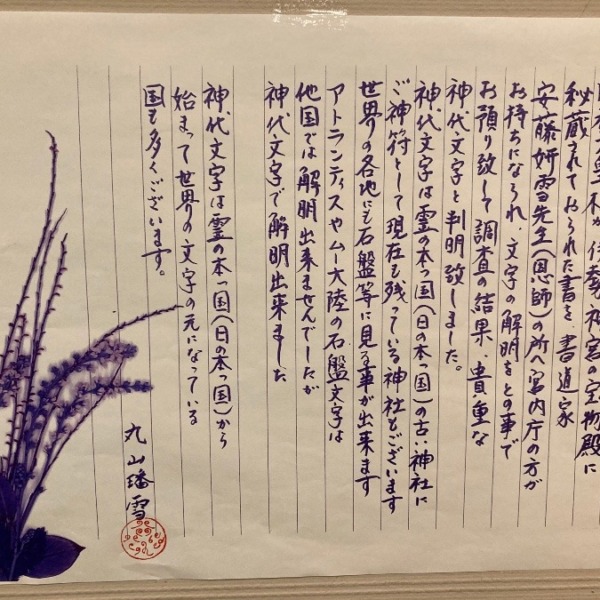 が伊勢神宮の宝物殿に
秘蔵されておられた書を、書道家
安藤妍雪先生(恩師)の所へ宮内庁の方が
お持ちになられ、文字の解明をとの事で
お預り致して調査の結果、貴重な
神代文字と判明致しました。
神代文字は霊の本つ国(日の本つ国)の古い神社に
ご神符として現在も残っている神社もございます
世界の各地にも石盤等に見る事が出来ます
アトランティスやムー大陸の石盤文字は
他国では解明出来ませんでしたが
神代文字で解明出来ました
神代文字は霊の本つ国(日の本つ国)から
始まって世界の文字の元になっている
国も多くございます。
丸山璠雪